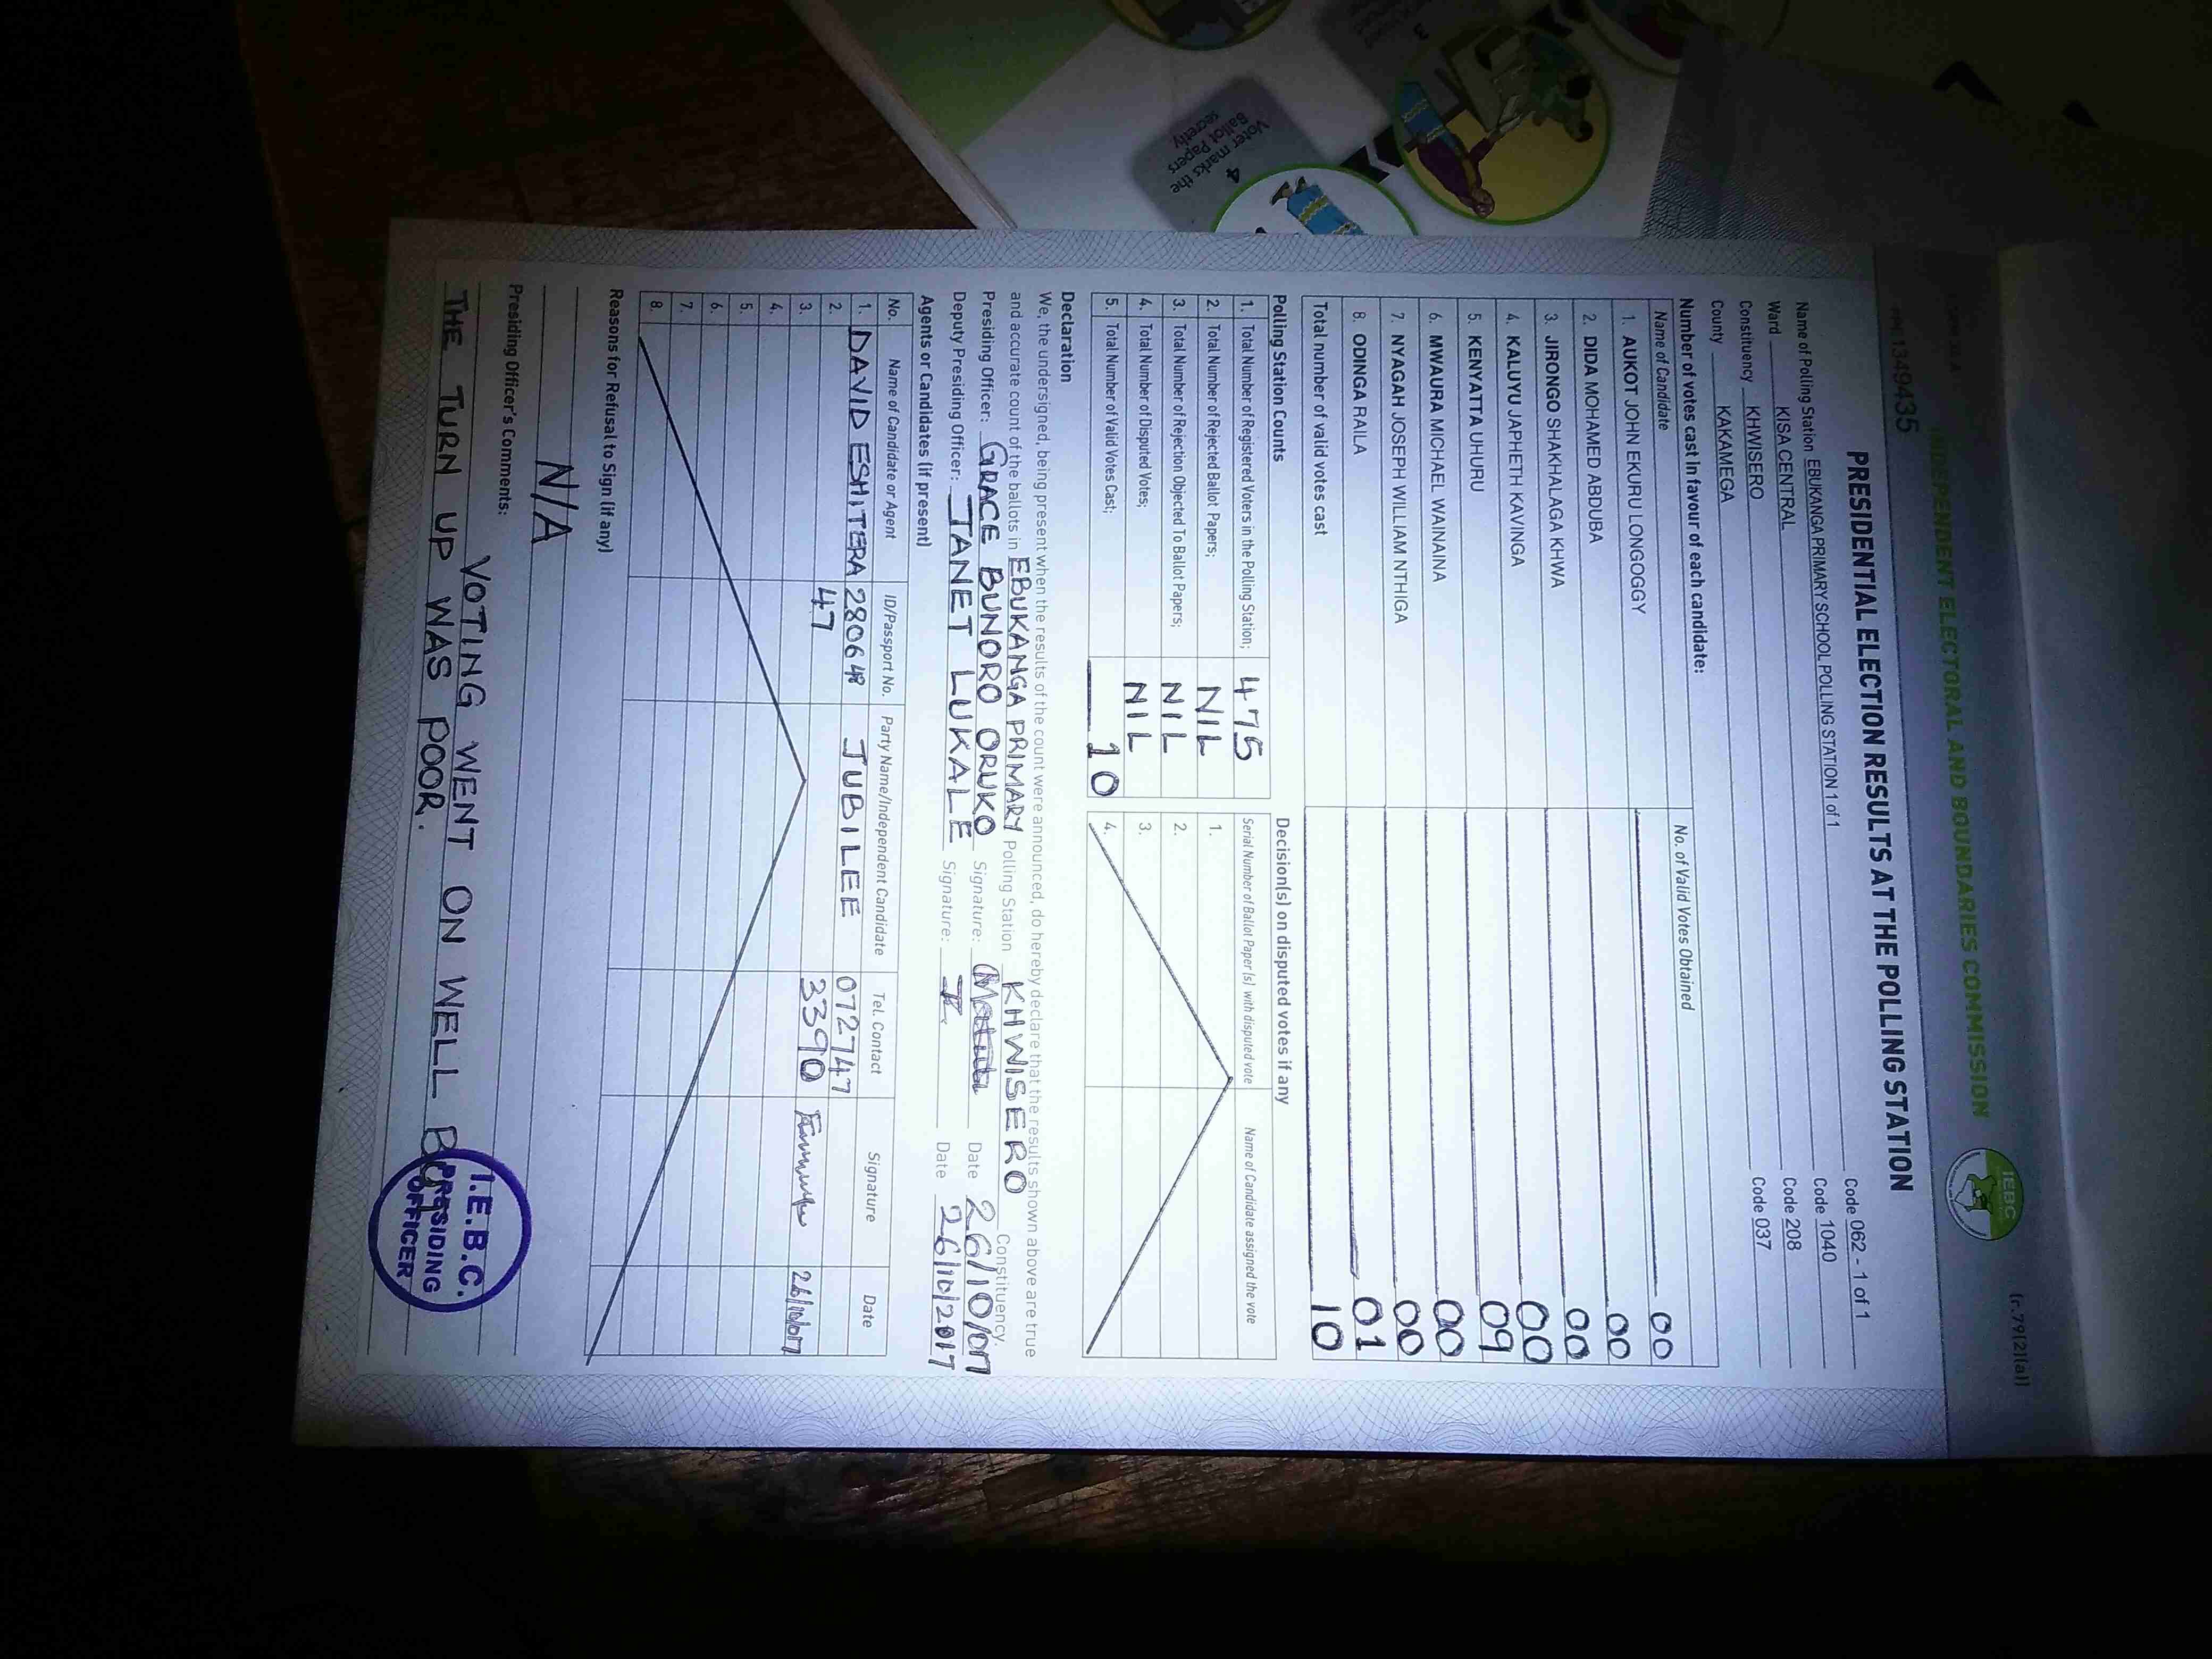 (r.79(2)(a))
INDEPENDENT ELECTORAL AND BOUNDARIES COMMISSION
IEBC
1349435
PRESIDENTIAL ELECTION RESULTS AT THE POLLING STATION
Name of Polling Station EBUKANGA PRIMARY SCHOOL POLLING STATION 1 of 1 Code 062 - 1 of 1
Ward KISA CENTRAL Code 1040
Constituency KHWISERO Code 208
County KAKAMEGA Code 037
Number of votes cast in favour of each candidate:
Name of Candidate No. of Valid Votes Obtained
1. AUKOT JOHN EKURU LONGOGGY 00
2. DIDA MOHAMED ABDUBA 00
3. JIRONGO SHAKHALAGA KHWA 00
4. KALUYU JAPHETH KAVINGA 00
5. KENYATTA UHURU 09
6. MWAURA MICHAEL WAINAINA 00
7. NYAGAH JOSEPH WILLIAM NTHIGA 00
8. ODINGA RAILA 01
Total number of valid votes cast 10
Polling Station Counts
1. Total Number of Registered Voters in the Polling Station; 475
2. Total Number of Rejected Ballot Papers; NIL
3. Total Number of Rejection Objected To Ballot Papers; NIL
4. Total Number of Disputed Votes; NIL
5. Total Number of Valid Votes Cast; 10
Decision(s) on disputed votes if any
Serial Number of Ballot Paper (s) with disputed vote Name of Candidate assigned the vote
1.
2.
3.
4.
Declaration
We, the undersigned, being present when the results of the count were announced, do hereby declare that the results shown above are true
and accurate count of the ballots in EBUKANGA PRIMARY Polling Station KHWISERO Constituency.
Presiding Officer: GRACE BUNORO ORUKO Signature: Date 26/10/017
Deputy Presiding Officer: JANET LUKALE Signature: Date 26/10/2017
Agents or Candidates (if present)
No. Name of Candidate or Agent ID/Passport No. Party Name/Independent Candidate Tel. Contact Signature Date
1. DAVID ESHITERA 280648 JUBILEE 072747
2. 47 3390 26/10/017
3.
4.
5.
6.
7.
8.
Reasons for Refusal to Sign (if any)
N/A
Presiding Officer's Comments:
VOTING WENT ON WELL BUT
THE TURN UP WAS POOR.
I.E.B.C.
PRESIDING
OFFICER
3
4
Voter marks the
Ballot Papers
secretly